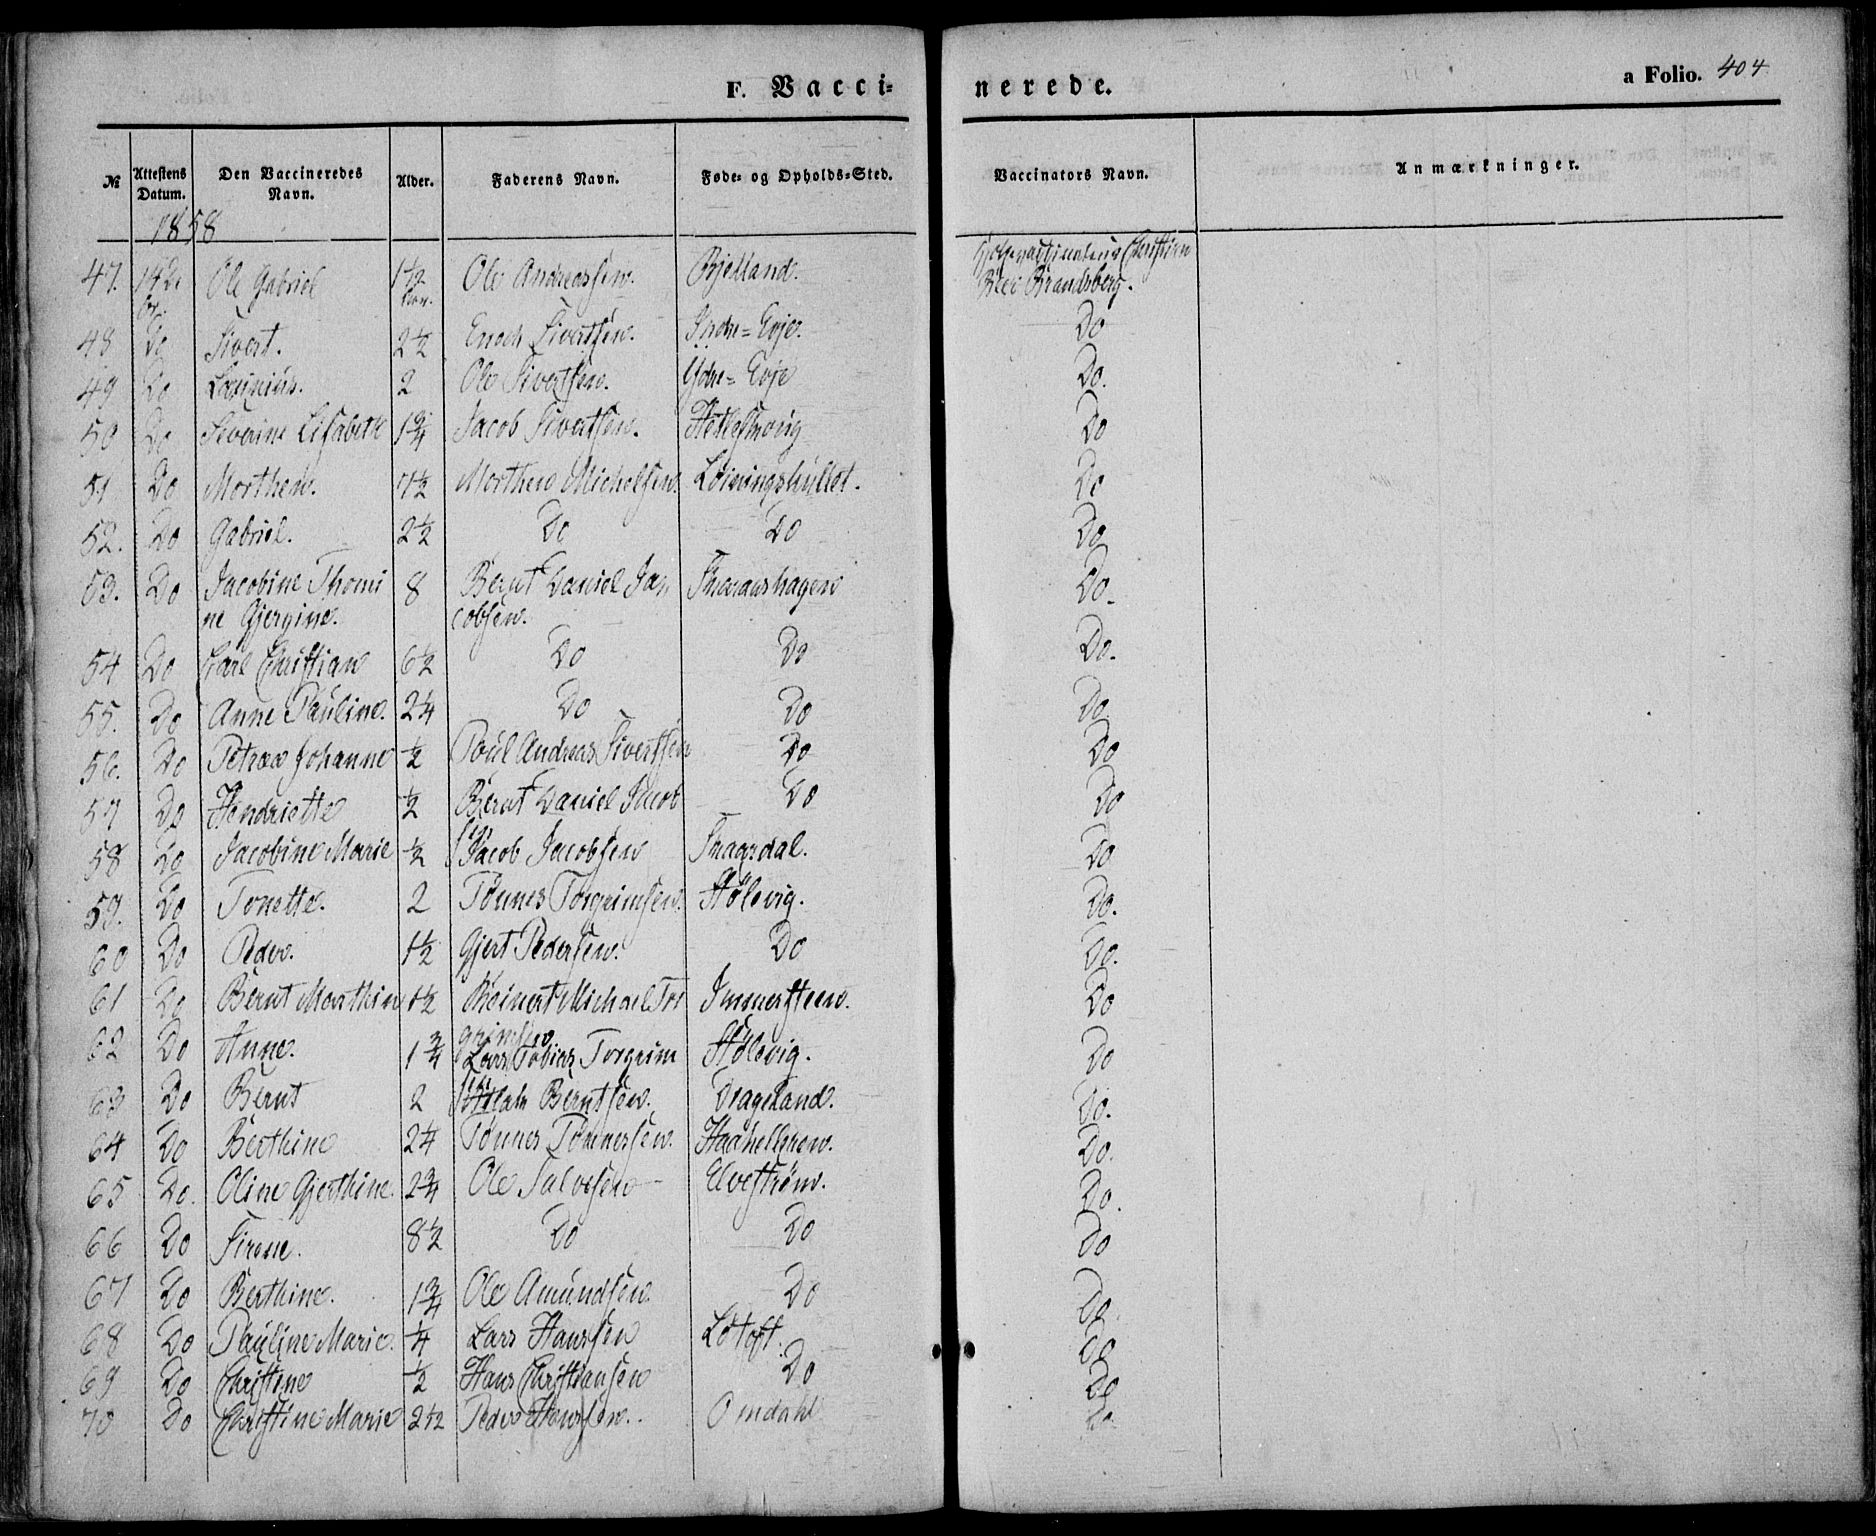 F. Vacci-
nerede.
a Folio. 404
№ Attestens Datum. Den Vaccineredes Navn. Alder. Faderens Navn. Føde- og Opholds-Sted. Vaccinators Navn. Anmærkninger.
1858
47. 14 Ole Gabriel 1½ Ole Andreassen. Bjelland. Christian
Brandsberg.
48 Do Sivert. 2½ Enoch Sivertsen. Indre-Evje. Do
49 Do 2 Ole Sivertsen. Ydre-Evje Do.
50 Do Severine Lisabeth 1¾ Jacob Sivertsen. Do
51 Do Morthen. 7½ Morthen Michelsen. Do
52. Do Gabriel. 2½ Do Do Do
53. Do Jacobine Thomi 8 Bernt Daniel Ja- Do.
ne Gjergine. cobsen.
54 Do Karl Christian 6½ Do Do Do.
55. Do Anne Pauline. 2¼ Do Do Do
56. Do Petrea Johanne ½ Poul Andreas Sivertsen Do Do
57 Do Hendriette ½ Bernt Daniel Jacob Do Do
sen
58 Do Jacobine Marie ½ Jacob Jacobsen Do
59. Do Tonette. 2 Tønnes Torgrimsen. Hølevig. Do.
60 Do Peder. 1½ Gjert Pedersen. Do Do.
61 Do Bernt Morthin 1½ Reinert Michael Tor Immersteen. Do
grimsen
62 Do Anne. 1¾ Lars Tobias Torgrim Hølevig. Do
sen
63 Do Bernt 2 Berntsen. Drageland. Do.
64 Do Berthine 2¼ Tønnes Tønnessen. Do.
65 Do. Oline Gjerthine. 2¾ Ole Salvesen Elvestrøm. Do.
66 Do Sirene. 8½ Do Do Do
67 Do Berthine. 1¾ Ole Amundsen. Do Do
68 Do Pauline Marie. ¼ Lars Hanssen Løtoft. Do
69 Do Christine ½ Hans Christiansen Do Do
70 Do Christine Marie 2½ Peder Hanssen. Omdahl Do